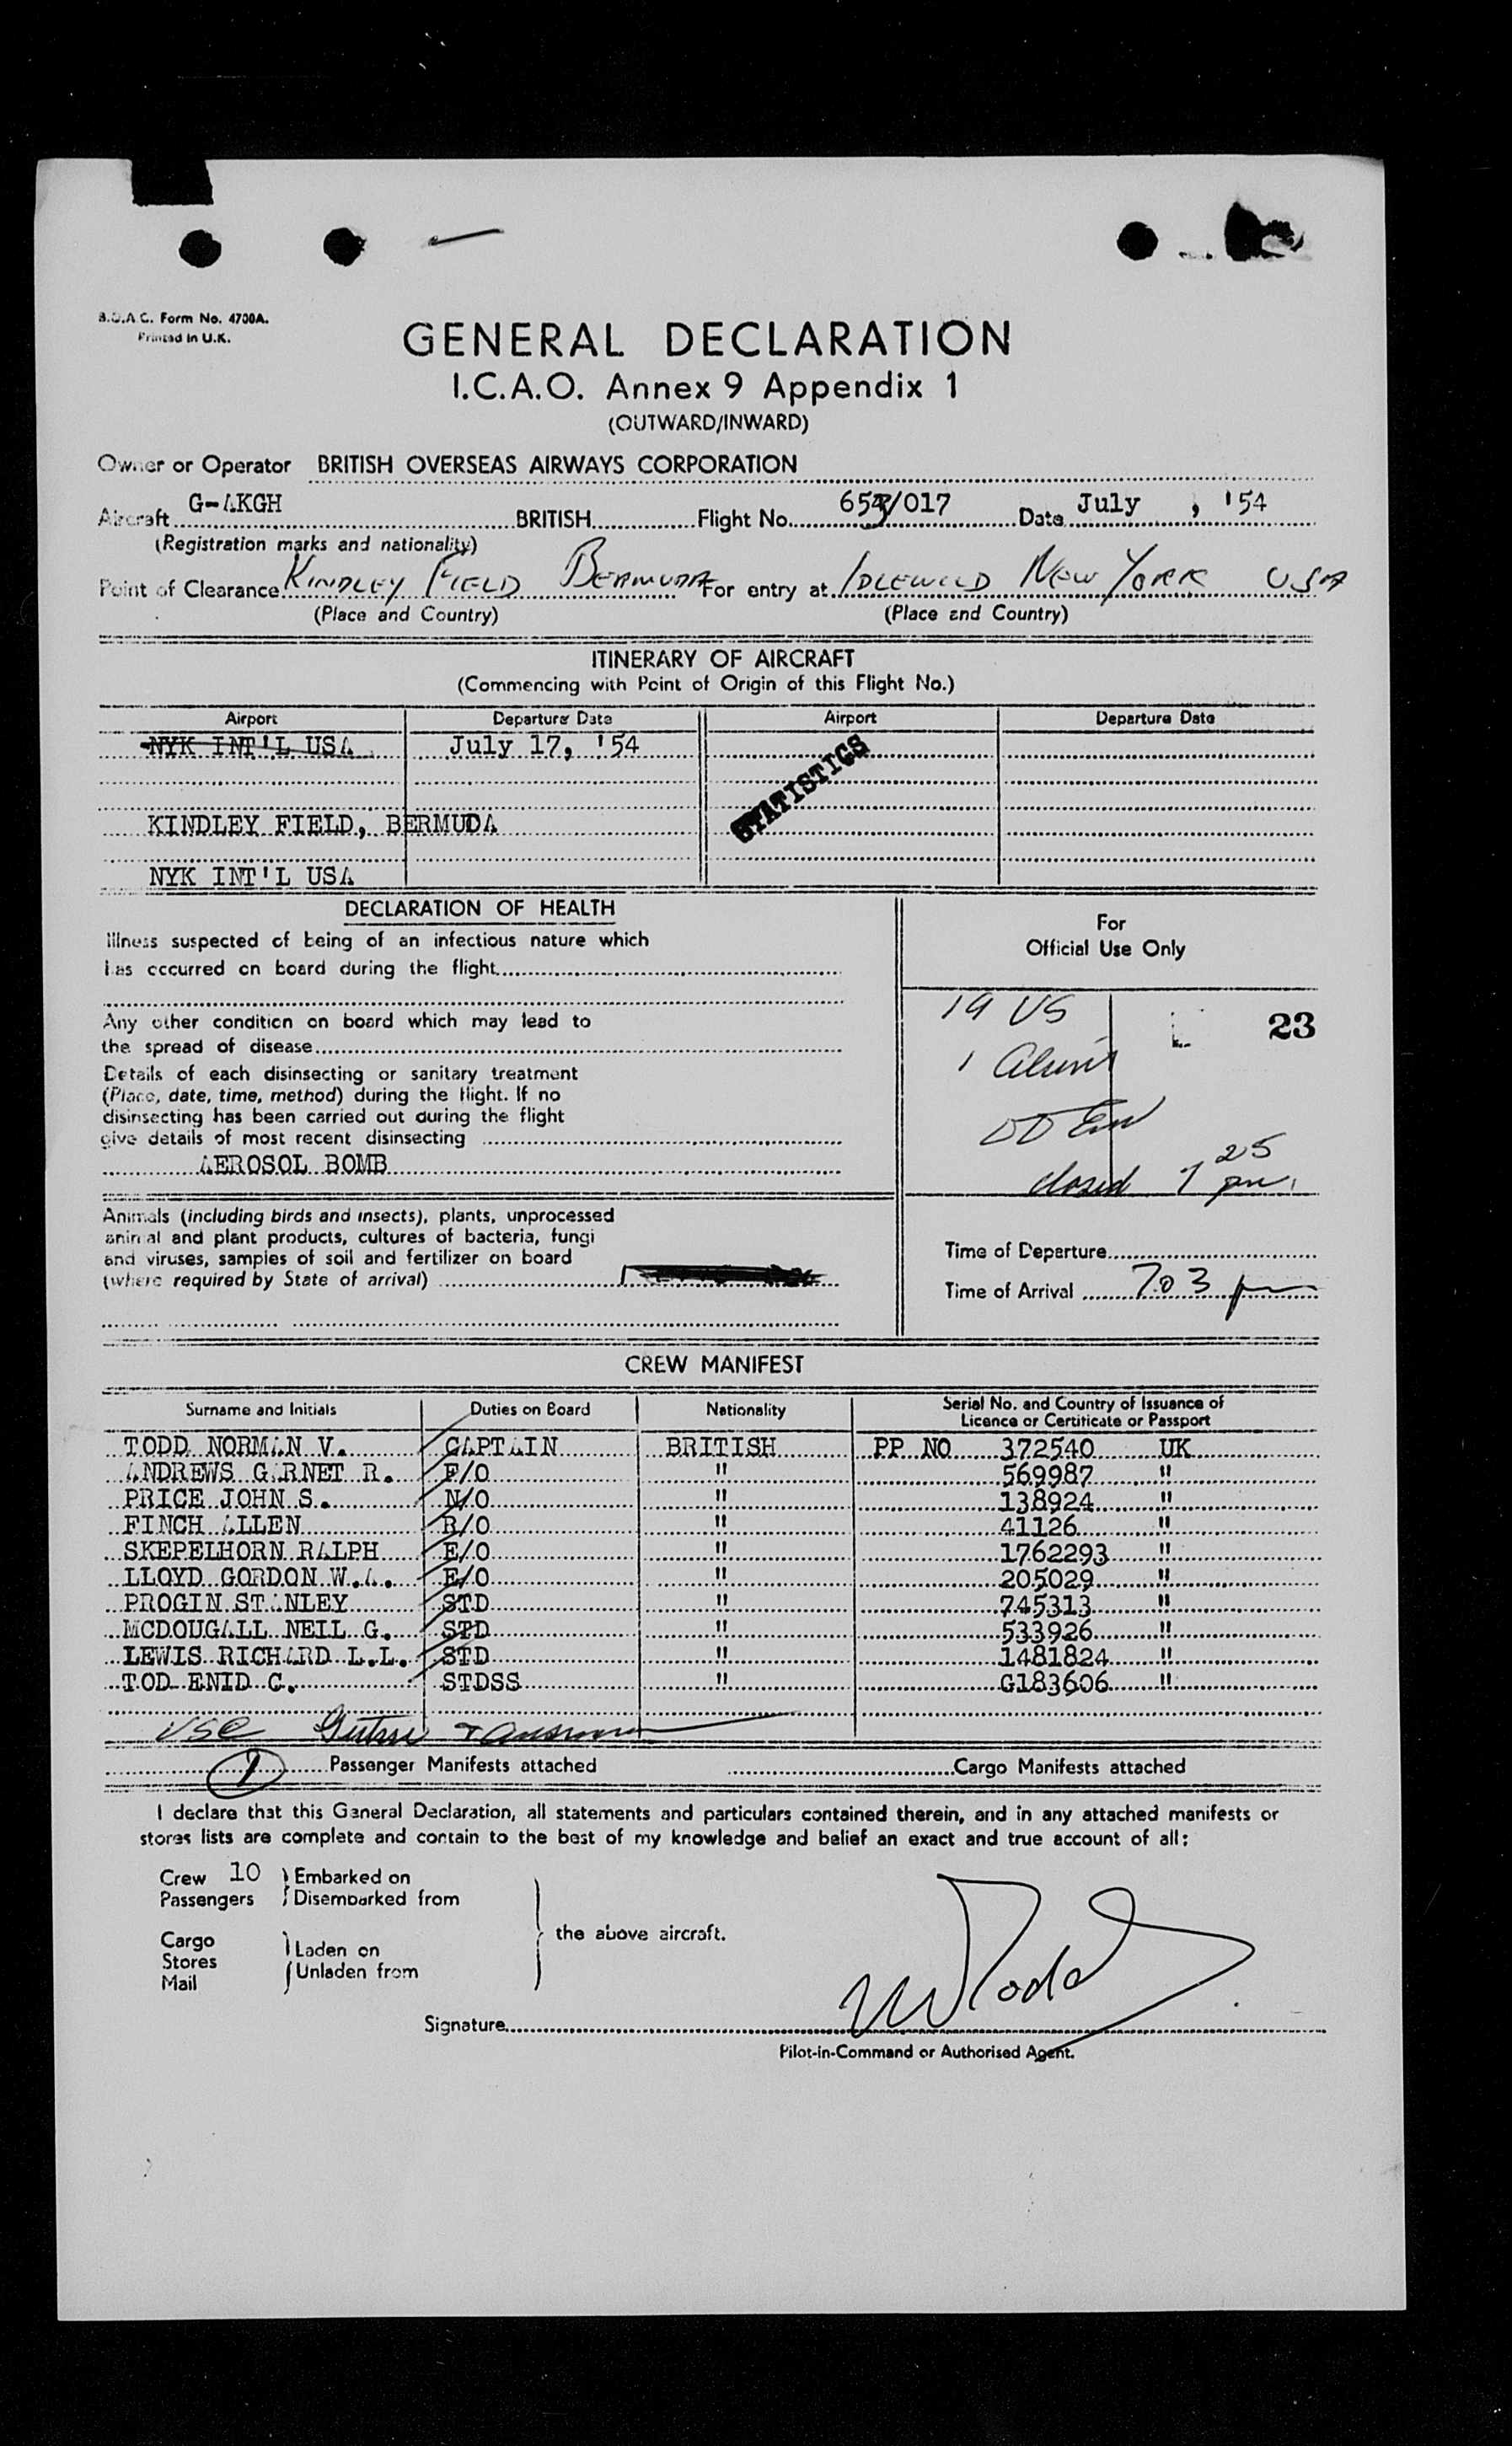 B.O.A.C. Form No. 4700A.
Printed in U.K.
GENERAL DECLARATION
I.C.A.O. Annex 9 Appendix 1
(OUTWARD/INWARD)
Owner or Operator BRITISH OVERSEAS AIRWAYS CORPORATION
Aircraft G-AKGH BRITISH Flight No. /017 Date July , '54
(Registration marks and nationality)
Point of Clearance KINDLEY FIELD BERMUDA For entry at IDLEWILD NEW YORK USA
(Place and Country) (Place and Country)
ITINERARY OF AIRCRAFT
(Commencing with Point of Origin of this Flight No.)
Airport Departure Date Airport Departure Date
NYK INT'L USA July 17, '54
STATISTICS
KINDLEY FIELD, BERMUDA
NYK INT'L USA
DECLARATION OF HEALTH
Illness suspected of being of an infectious nature which
has occurred on board during the flight
Any other condition on board which may lead to
the spread of disease
Details of each disinsecting or sanitary treatment
(Place, date, time, method) during the flight. If no
disinsecting has been carried out during the flight
give details of most recent disinsecting
AEROSOL BOMB
Animals (including birds and insects), plants, unprocessed
animal and plant products, cultures of bacteria, fungi
and viruses, samples of soil and fertilizer on board
(where required by State of arrival)
For
Official Use Only
19 US
23
1 Alien
closed 7 25 pm
Time of Departure
Time of Arrival 703 pm
CREW MANIFEST
Surname and Initials Duties on Board Nationality Serial No. and Country of Issuance of
Licence or Certificate or Passport
TODD NORMAN V. CAPTAIN BRITISH PP NO 372540 UK
ANDREWS GARNET R. F/O " 569987 "
PRICE JOHN S. N/O " 138924 "
FINCH ALLEN R/O " 41126 "
SKEPELHORN RALPH E/O " 1762293 "
LLOYD GORDON W.A. E/O " 205029 "
PROGIN STANLEY STD " 745313 "
MCDOUGALL NEIL G. STD " 533926 "
LEWIS RICHARD L.L. STD " 1481824 "
TOD ENID C. STDSS " G183606 "
1 Passenger Manifests attached Cargo Manifests attached
I declare that this General Declaration, all statements and particulars contained therein, and in any attached manifests or
stores lists are complete and contain to the best of my knowledge and belief an exact and true account of all:
Crew 10 Embarked on
Passengers Disembarked from
the above aircraft.
Cargo
Stores Laden on
Mail Unladen from
Signature NVTodd
Pilot-in-Command or Authorised Agent.